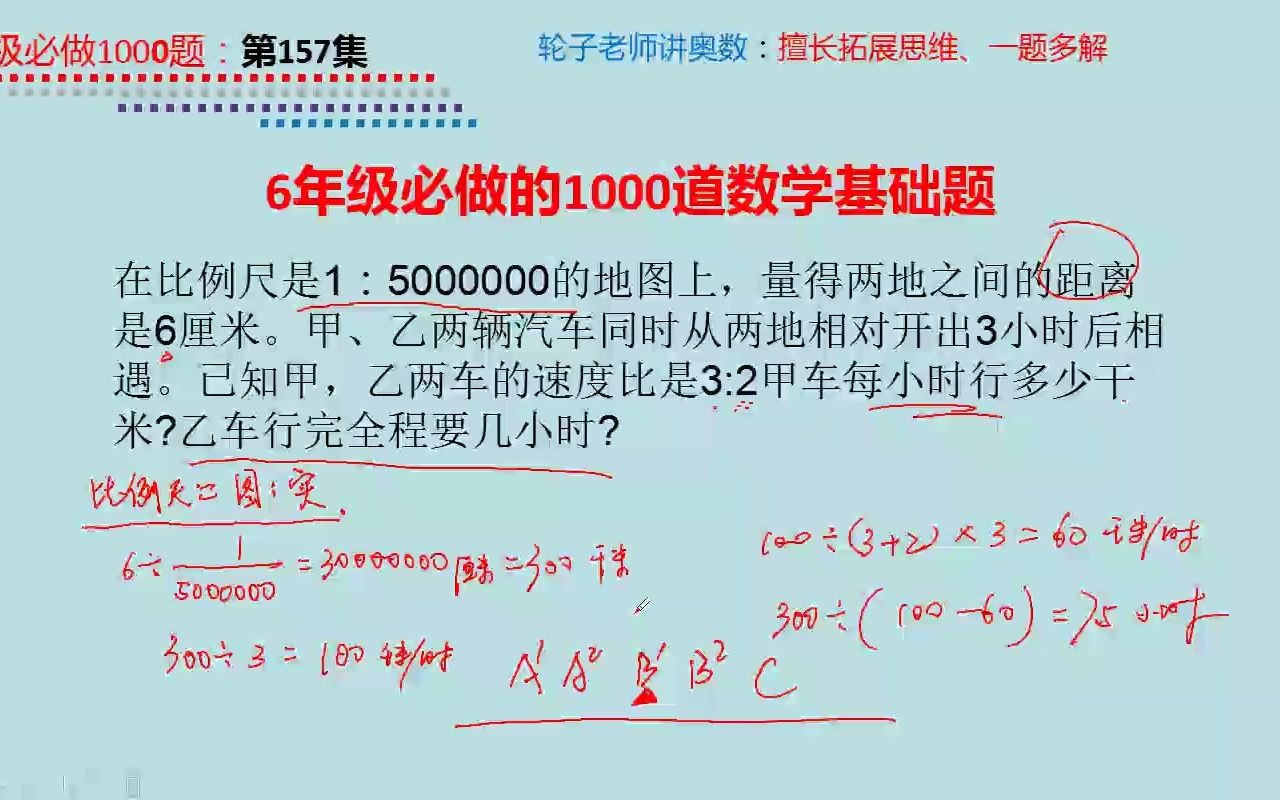 级必做1000题：第157集
轮子老师讲奥数：擅长拓展思维、一题多解
6年级必做的1000道数学基础题
在比例尺是1：5000000的地图上，量得两地之间的距离
是6厘米。甲、乙两辆汽车同时从两地相对开出3小时后相
遇。已知甲，乙两车的速度比是3:2甲车每小时行多少干
米?乙车行完全程要几小时?
比例尺=图:实
6÷1/5000000=30000000厘米=300千米
300÷3=100千米/时
100÷(3+2)×3=60千米/时
300÷(100-60)=7.5小时
A¹ A² B¹ B² C